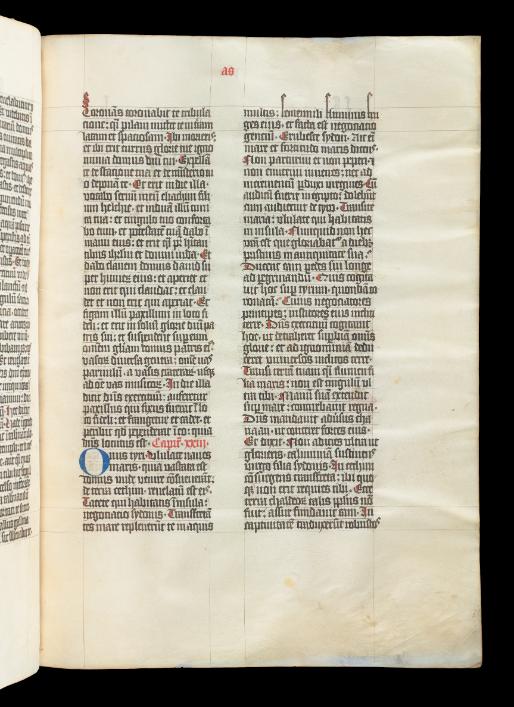 as
Coronās coronabit te tribula
cione: q̄si pilam mittet te in t̄ram
latam et spaciosam. Ibi morieris:
et ibi erit currus glorie tue igno
minia domus dñi tui. Expellā
te de statione tua et de misterio tuo
deponā te. Et erit in die illa:
vocabo seruū meū eliachim filiū
um helchie. et induā illū tuni
ca tua: et cingulo tuo conforta
bo eum. et potestatē tuā dabo ī
manu eius: et erit q̄si pr̄ hītan
tibus ihrlm et domui iuda. Et
dabo clauem domus dauid su
per humerū eius: et aperiet et
non erit qui claudat: et clau
det et non erit qui aperiat. Et
figam illū paxillum in loco fi
deli: et erit in soliū glorie domui pa
tris sui: et suspendent sup eum
omnem gliam domus patris eiꝰ.
vasorū diuersa genera: omne vas
paruulū. a vasis craterarū. usqꝫ
ad ōe vas musicorū. In die illa
dicit dñs exercituū: auferetur
paxillus qui fixus fuerat ī lo
co fideli: et frangetur et cadet. et
peribit qd̄ pependerat ī eo: quia
dñs locutus est. Capm̄ .xxiii.
Onus tyri. Ululate naues
maris: quia vastata est
domus unde venire cōsueuerāt:
de terra cethim reuelatū est eis.
Tacete qui habitatis ī insula:
negociacio sydonis. Transfretā
tes mare repleuerūt te in aquis
multis: semen nili. messis flumi
nis fruges eius. et facta est negociacio
gencium. Erubesce sydon. Ait enī
mare et fortitudo maris dicens.
Non parturiui et non peperi. et
non enutriui iuuenes: nec ad
incrementū pduxi virgines. Cū
auditū fuerit in egypto: dolebūt
cum audierint de tyro. Transite
maria: ululate qui habitatis
in insula. Nunquid non hec
vrā est que gloriabatur a diebꝫ
pristinis in antiquitate sua.
Ducent eam pedes sui longe
ad peregrinandū. Quis cogita
uit hoc sup tyrum. quondā co
ronatā: Cuius negociatores
principes: institores eius incliti
terre. Dñs exercituū cogitauit
hoc. ut detraheret supbiam omīs
glorie: et ad ignominiā dedu
ceret uniuersos inclitos terre.
Transi terrā tuam q̄si flumen fi
lia maris: non est cingulū ul
tra tibi. Manū suā extendit
sup mare: conturbauit regna.
Dñs mandauit aduersus cha
naan. ut contereret fortes eius.
Et dixit. Non adicies ultra ut
glorieris. calumniā sustinens
virgo filia sydonis. In cethim
cōsurgens transfreta: ibi quo
qꝫ non erit requies tibi. Ecce
terra chaldeorū talis ppłus nō
fuit: assur fundauit eam. In
captiuitatē traduxerūt robustos